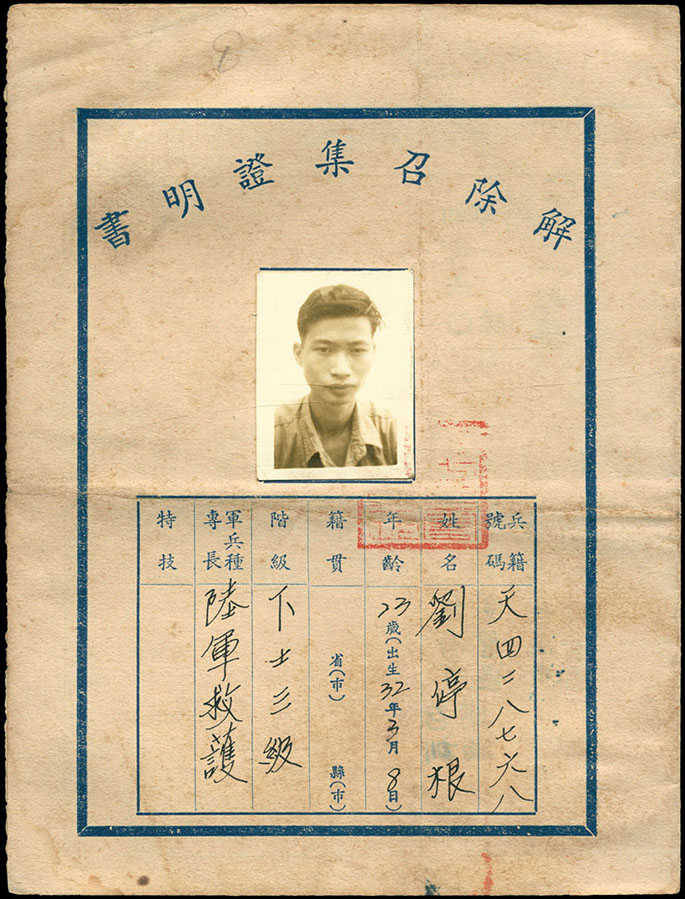 解除召集證明書
兵籍號碼 天四二八七六八
姓名 劉停根
年齡 23歲(出生32年3月8日)
籍貫 省(市) 縣(市)
階級 下士三級
軍兵種專長 陸軍救護
特技